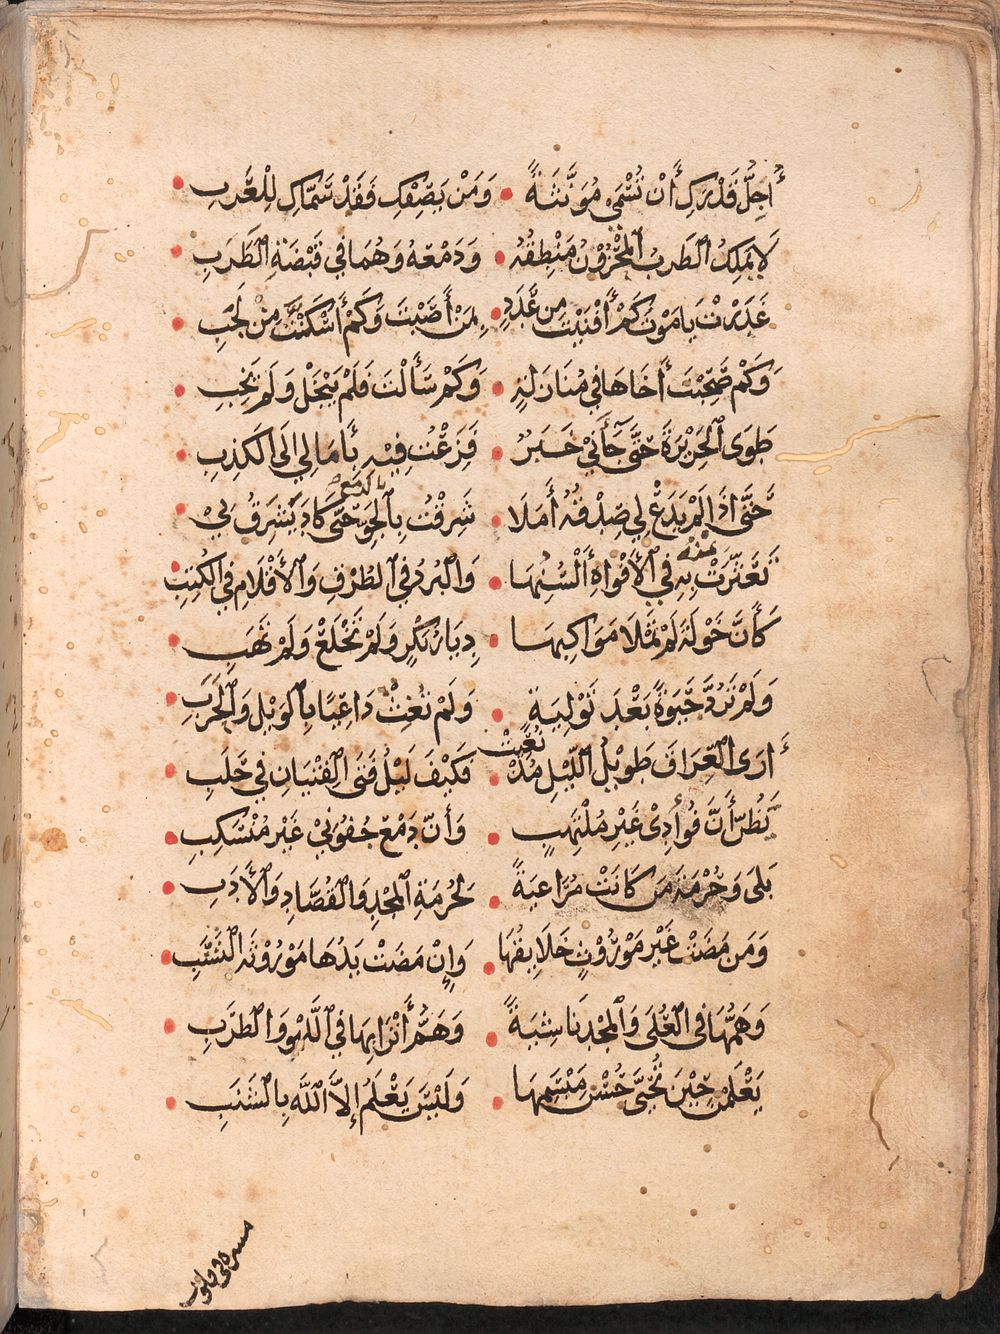 أُجِلُّ قَدْرَكِ أَنْ تُسْمَى مُؤَنَّثَةً • وَمَنْ يَصِفْكِ فَقَدْ سَمَّاكِ لِلْعَرَبِ
لَا يَمْلِكُ الطَرِبُ الْمَحْزُوْنُ مَنْطِقَهُ • وَدَمْعَهُ وَهُمَا فِي قَبْضَةِ الطَّرَبِ
غَدَرْتَ يَا مَوْتُ كَمْ أَفْنَيْتَ مِن عَدَدٍ • بِمَنْ أَصَبْتَ وَكَمْ أَسْكَتَّ مِنْ لَجَبِ
وَكَمْ صَحِبْتَ أَخَاهَا فِي مُنَازَلَةٍ • وَكَمْ سَأَلْتَ فَلَمْ يَبْخَلْ وَلَمْ تَخِبِ
طَوَى الْجَزِيْرَةَ حَتَّى جَآءَنِي خَبَرٌ • فَزِعْتُ فِيْهِ بِآمَالِي إِلَى الكَذِبِ
حَتَّى إِذَا لَمْ يَدَعْ لِي صِدْقُهُ أَمَلَا • شَرِقْتُ بِالْجَوِ حَتَّى كَادَ يَشْرَقُ بِيْ
بالدمع
تَعَثَّرَتْ بِهِ فِي الْأَفْوَاهِ أَلْسُنُهَا • وَالْبُرْدُ فِي الطُرْقِ وَالْأَقْلَامُ فِي الكُتُبِ
منه
كَأَنَّ خَوْلَةَ لَمْ تَمْلَا مَوَاكِبُهَا • دِيَارَ بَكْرٍ وَلَمْ تَخْلَعْ وَلَمْ تَهَبِ
وَلَمْ تَرُدَّ حَيَوةً بَعْدَ تَوْلِيَةٍ • وَلَمْ تُغِثْ دَاعِيًا بِالْوَيْلِ وَالْحَرَبِ
أَرَى الْعِرَاقَ طَوِيْلَ اللَّيْلِ مُذْ نُعِيَتْ • فَكَيْفَ لَيْلُ فَتَى الْفِتْيَانِ فِي حَلَبِ
يَظُنُّ أَنَّ فُؤَادِيْ غَيْرُ مُلْتَهِبٍ • وَأَنَّ دَمْعَ جُفُوْنِيْ غَيْرُ مُنْسَكِبِ
بَلَى وَحُرْمَةِ مَن كَانَتْ مُرَاعِيَةً • لِحُرْمَةِ الْمَجْدِ وَالْقُصَّادِ وَالْأَدَبِ
وَمَن مَضَتْ غَيْرَ مَوْرُوْثٍ خَلَايِقُهَا • وَإِنْ مَضَتْ يَدُهَا مَوْرُوْثَةَ النَّشَبِ
وَهَمُّهَا فِي الْعُلَى وَالْمَجْدِ نَاشِيَةً • وَهَمُّ أَتْرَابِهَا فِي اللَّهْوِ وَالطَرَبِ
يَعْلَمْنَ حِيْنَ تُحَيَّى حُسْنَ مَبْسَمِهَا • وَلَيْسَ يَعْلَمُ إِلَّا اللَّهُ بِالشَنَبِ
مسرة في قلوب